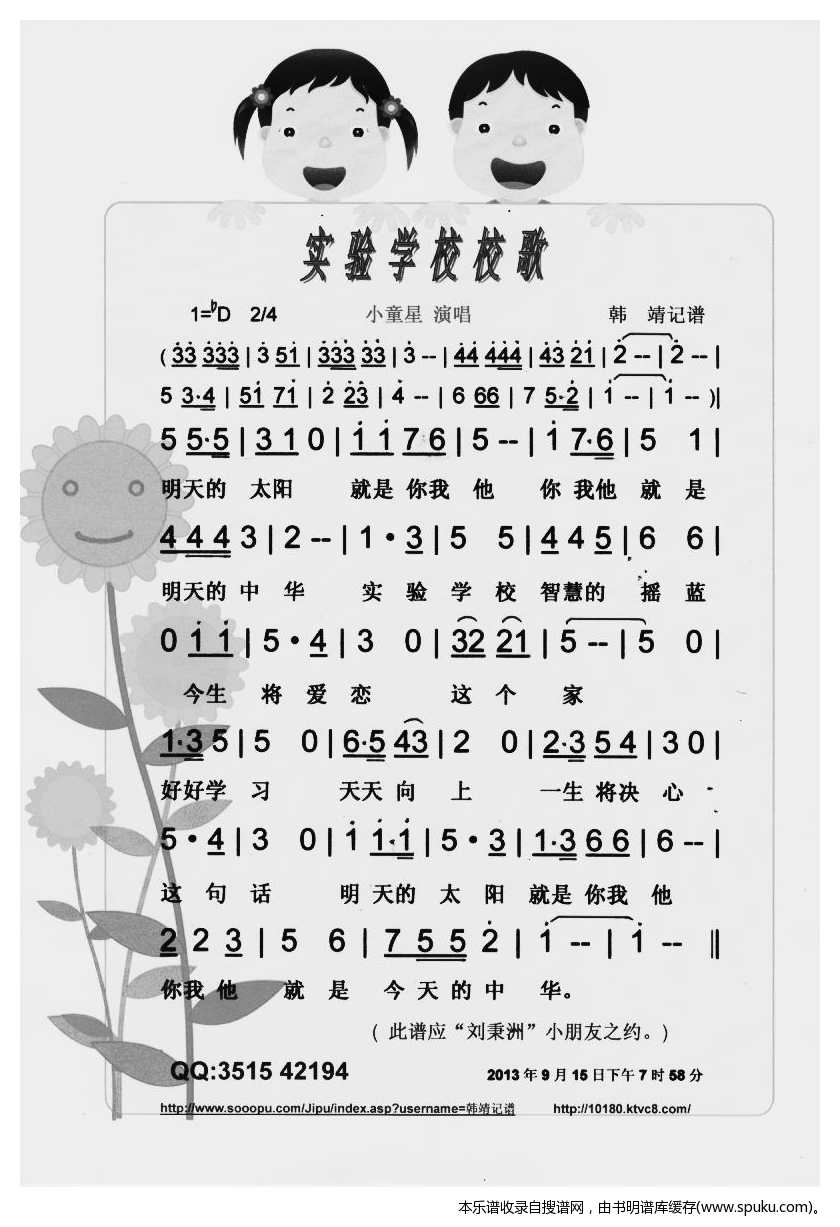 实验学校校歌
1=♭D 2/4 小童星 演唱 韩 靖记谱
(3̇3̇ 3̇3̇3̇ | 3̇ 51̇ | 3̇3̇3̇ 3̇3̇ | 3̇ -- | 4̇4̇ 4̇4̇4̇ | 4̇3̇ 2̇1̇ | 2̇ -- | 2̇ -- |
5 3·4 | 51̇ 71̇ | 2̇ 2̇3̇ | 4̇ -- | 6 66 | 7 5·2̇ | 1̇ -- | 1̇ -- )|
5 5·5 | 3 1 0 | 1̇ 1̇ 7 6 | 5 -- | 1̇ 7·6 | 5 1 |
明天的 太阳 就是 你我 他 你 我他 就 是
4 4 4 3 | 2 -- | 1 · 3 | 5 5 | 4 4 5 | 6 6 |
明天的 中 华 实 验 学 校 智慧的 摇 蓝
0 1̇ 1̇ | 5 · 4 | 3 0 | 32 21 | 5 -- | 5 0 |
今生 将 爱 恋 这 个 家
1·3 5 | 5 0 | 6·5 43 | 2 0 | 2·3 5 4 | 3 0 |
好好学 习 天天 向 上 一生 将决 心
5 · 4 | 3 0 | 1̇ 1̇·1̇ | 5 · 3 | 1·3 6 6 | 6 -- |
这 句 话 明 天的 太 阳 就是 你我 他
2 2 3 | 5 6 | 7 5 5 2̇ | 1̇ -- | 1̇ -- ‖
你我 他 就 是 今 天 的 中 华。
( 此谱应“刘秉洲”小朋友之约。)
QQ:3515 42194 2013 年 9 月 15 日下午 7 时 58 分
http://www.sooopu.com/Jipu/index.asp?username=韩靖记谱 http://10180.ktvc8.com/
本乐谱收录自搜谱网，由书明谱库缓存(www.spuku.com)。